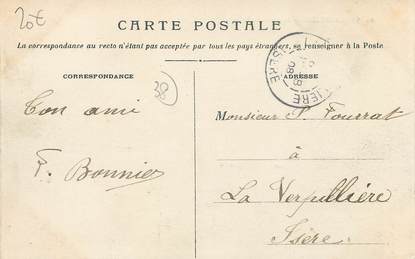 20€
CARTE POSTALE
La correspondance au recto n'étant pas acceptée par tous les pays étrangers, se renseigner à la Poste
CORRESPONDANCE
ADRESSE
38
ISÈRE
Ton ami
F. Bonnier
Monsieur S. Fourrat
à
La Verpillière
Isère